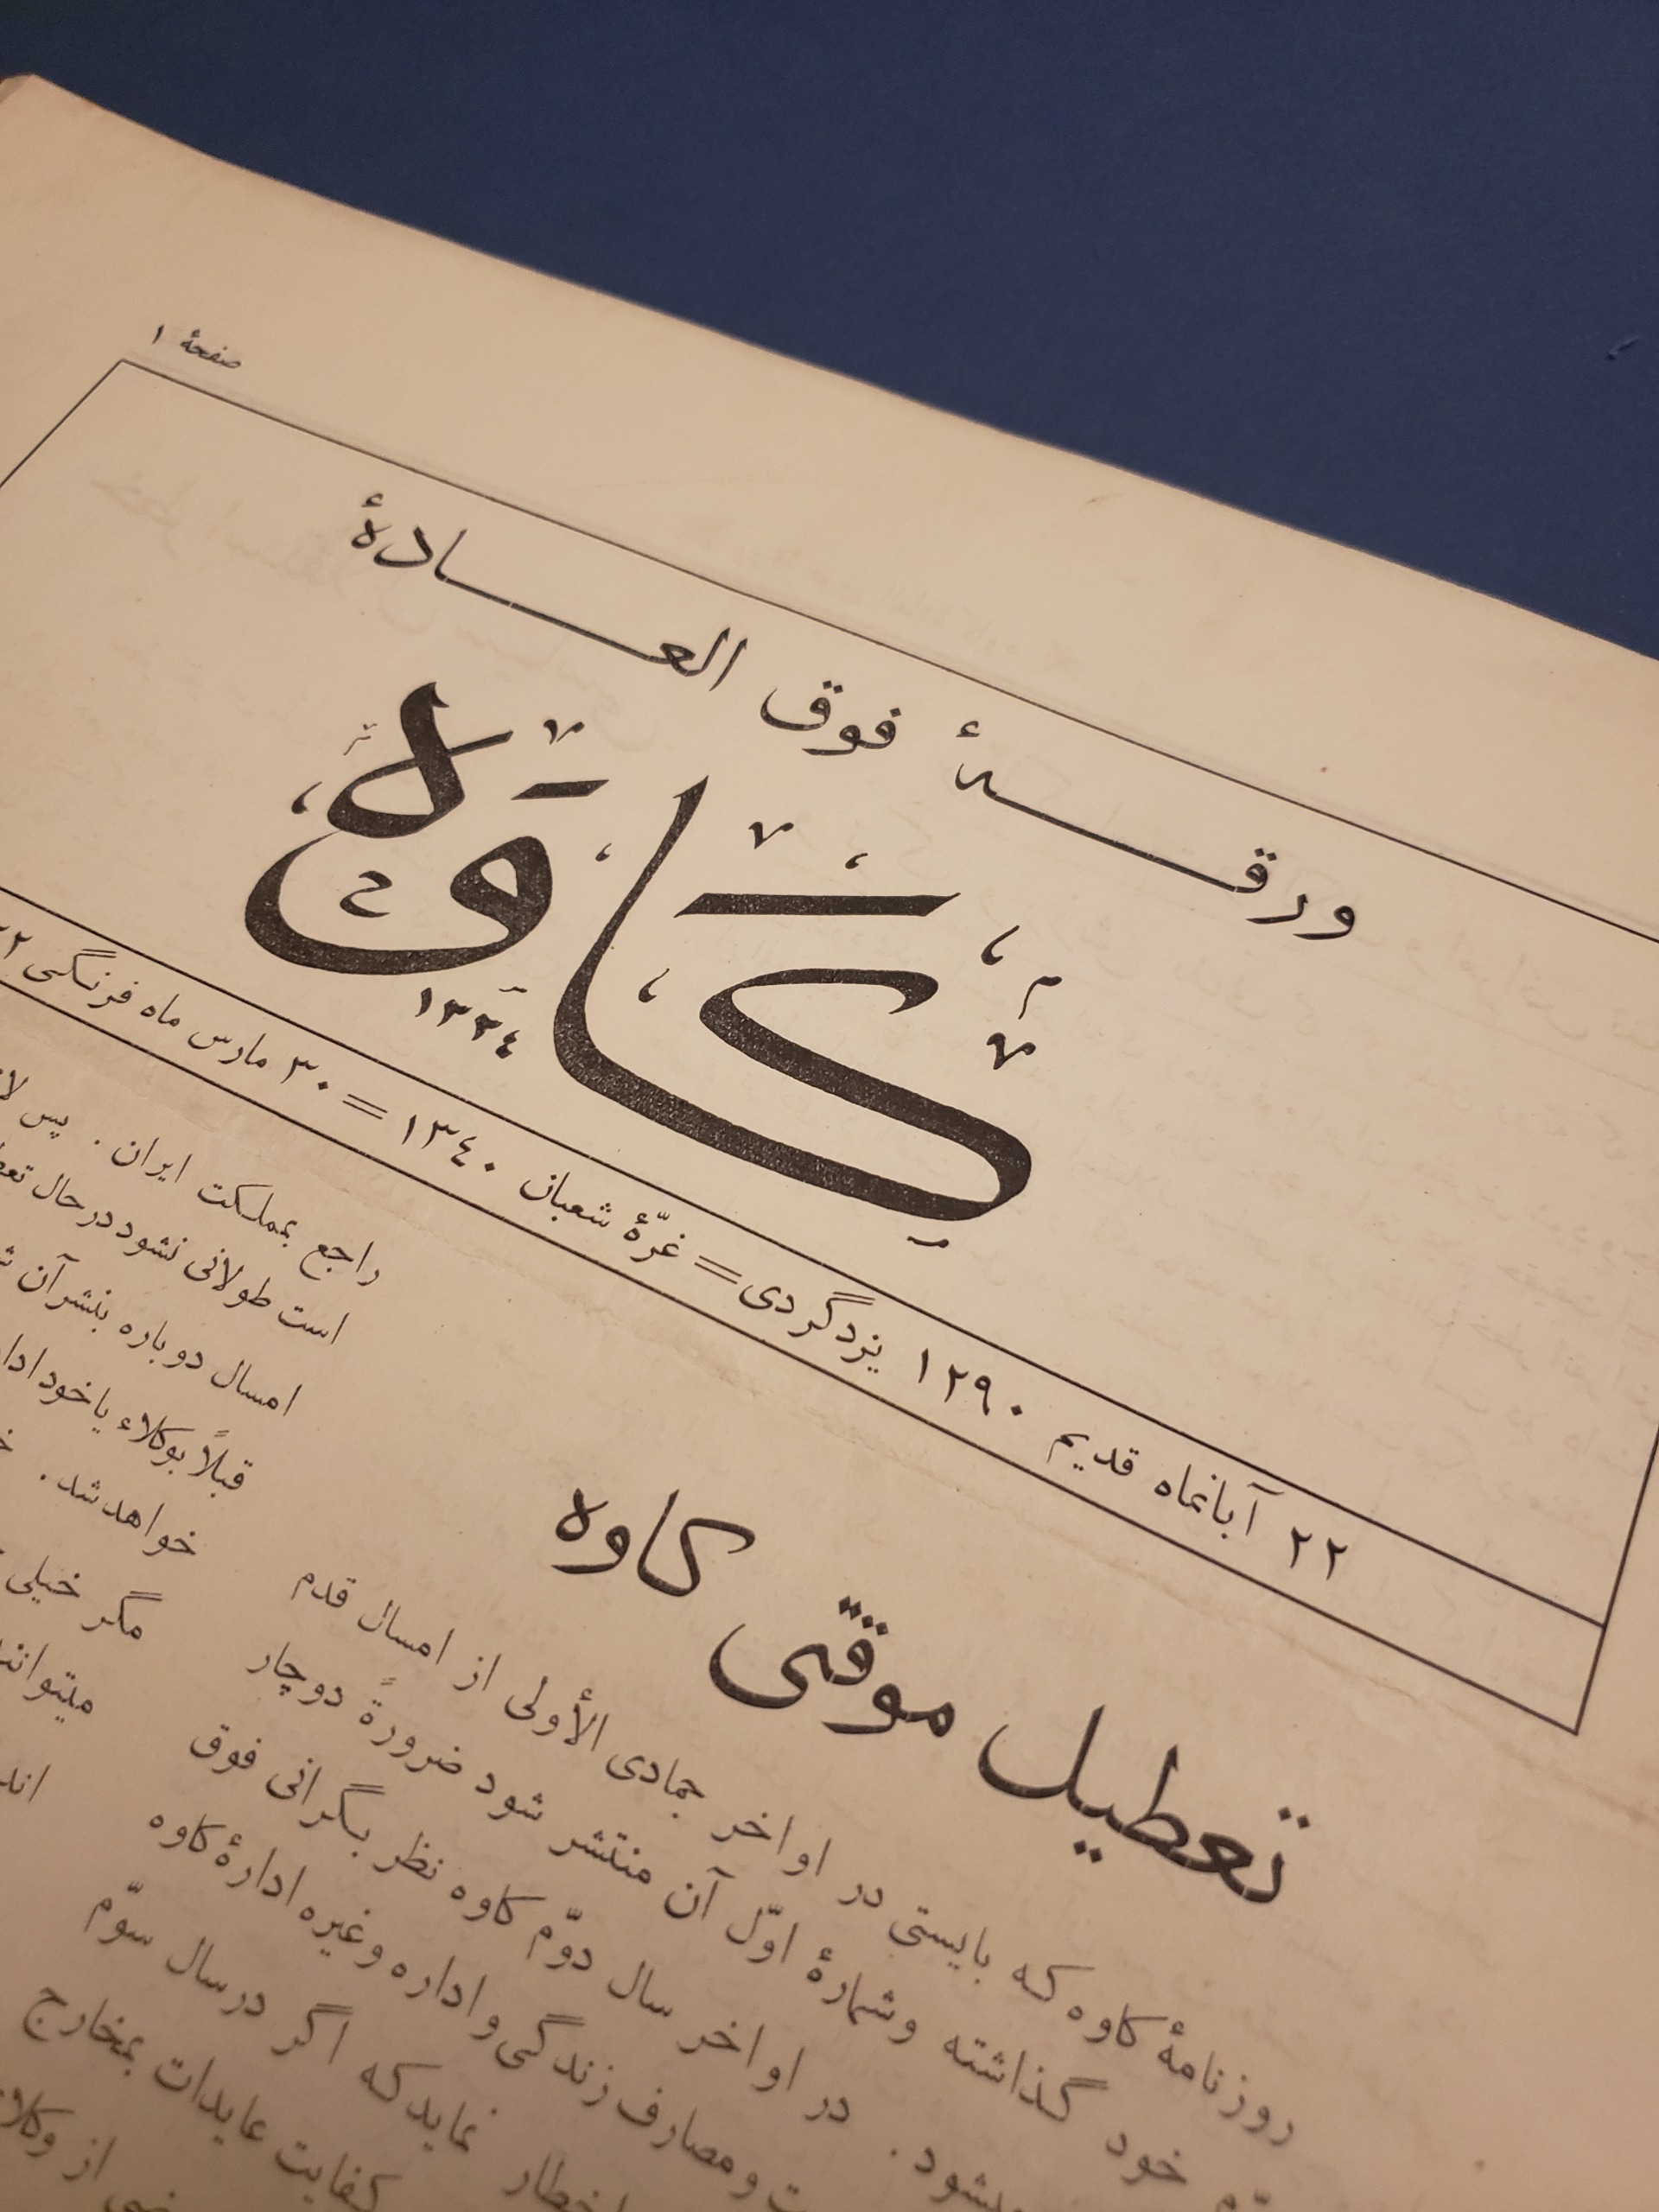 صفحهٔ ۱
ورقهٔ فوق العادهٔ
کاوه
۱۳۳٤
۲۲ آبانماه قدیم ۱۲۹۰ یزدگردی = غرّهٔ شعبان ۱۳٤۰ = ۳۰ مارس ماه فرنگی
تعطیل موقتی کاوه
روزنامهٔ کاوه که بایستی در اواخر جمادی الأولی از امسال قدم
خود گذاشته وشمارهٔ اوّل آن منتشر شود ضرورةً دوچار
در اواخر سال دوّم کاوه نظر بگرانی فوق
ومصارف زندگی و اداره وغیره ادارهٔ کاوه
نماید که اگر درسال سوّم
کفایت عایدات بمخارج
از
راجع بمملکت ایران . پس
است طولانی نشود درحال
امسال دوباره بنشر آن
قبلاً بوکلاء یا خود
خواهد شد .
مگر خیلی
میتوانند